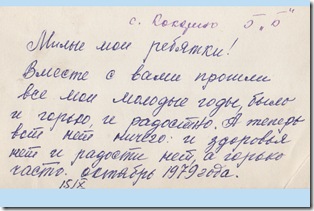 с. Кокарино 5 „Б"
Милые мои ребятки!
Вместе с вами прошли
все мои молодые годы, было
и горько, и радостно. А теперь
вот нет ничего: и здоровья
нет и радости нет, а горько
часто. октябрь 1979 года.
15/X